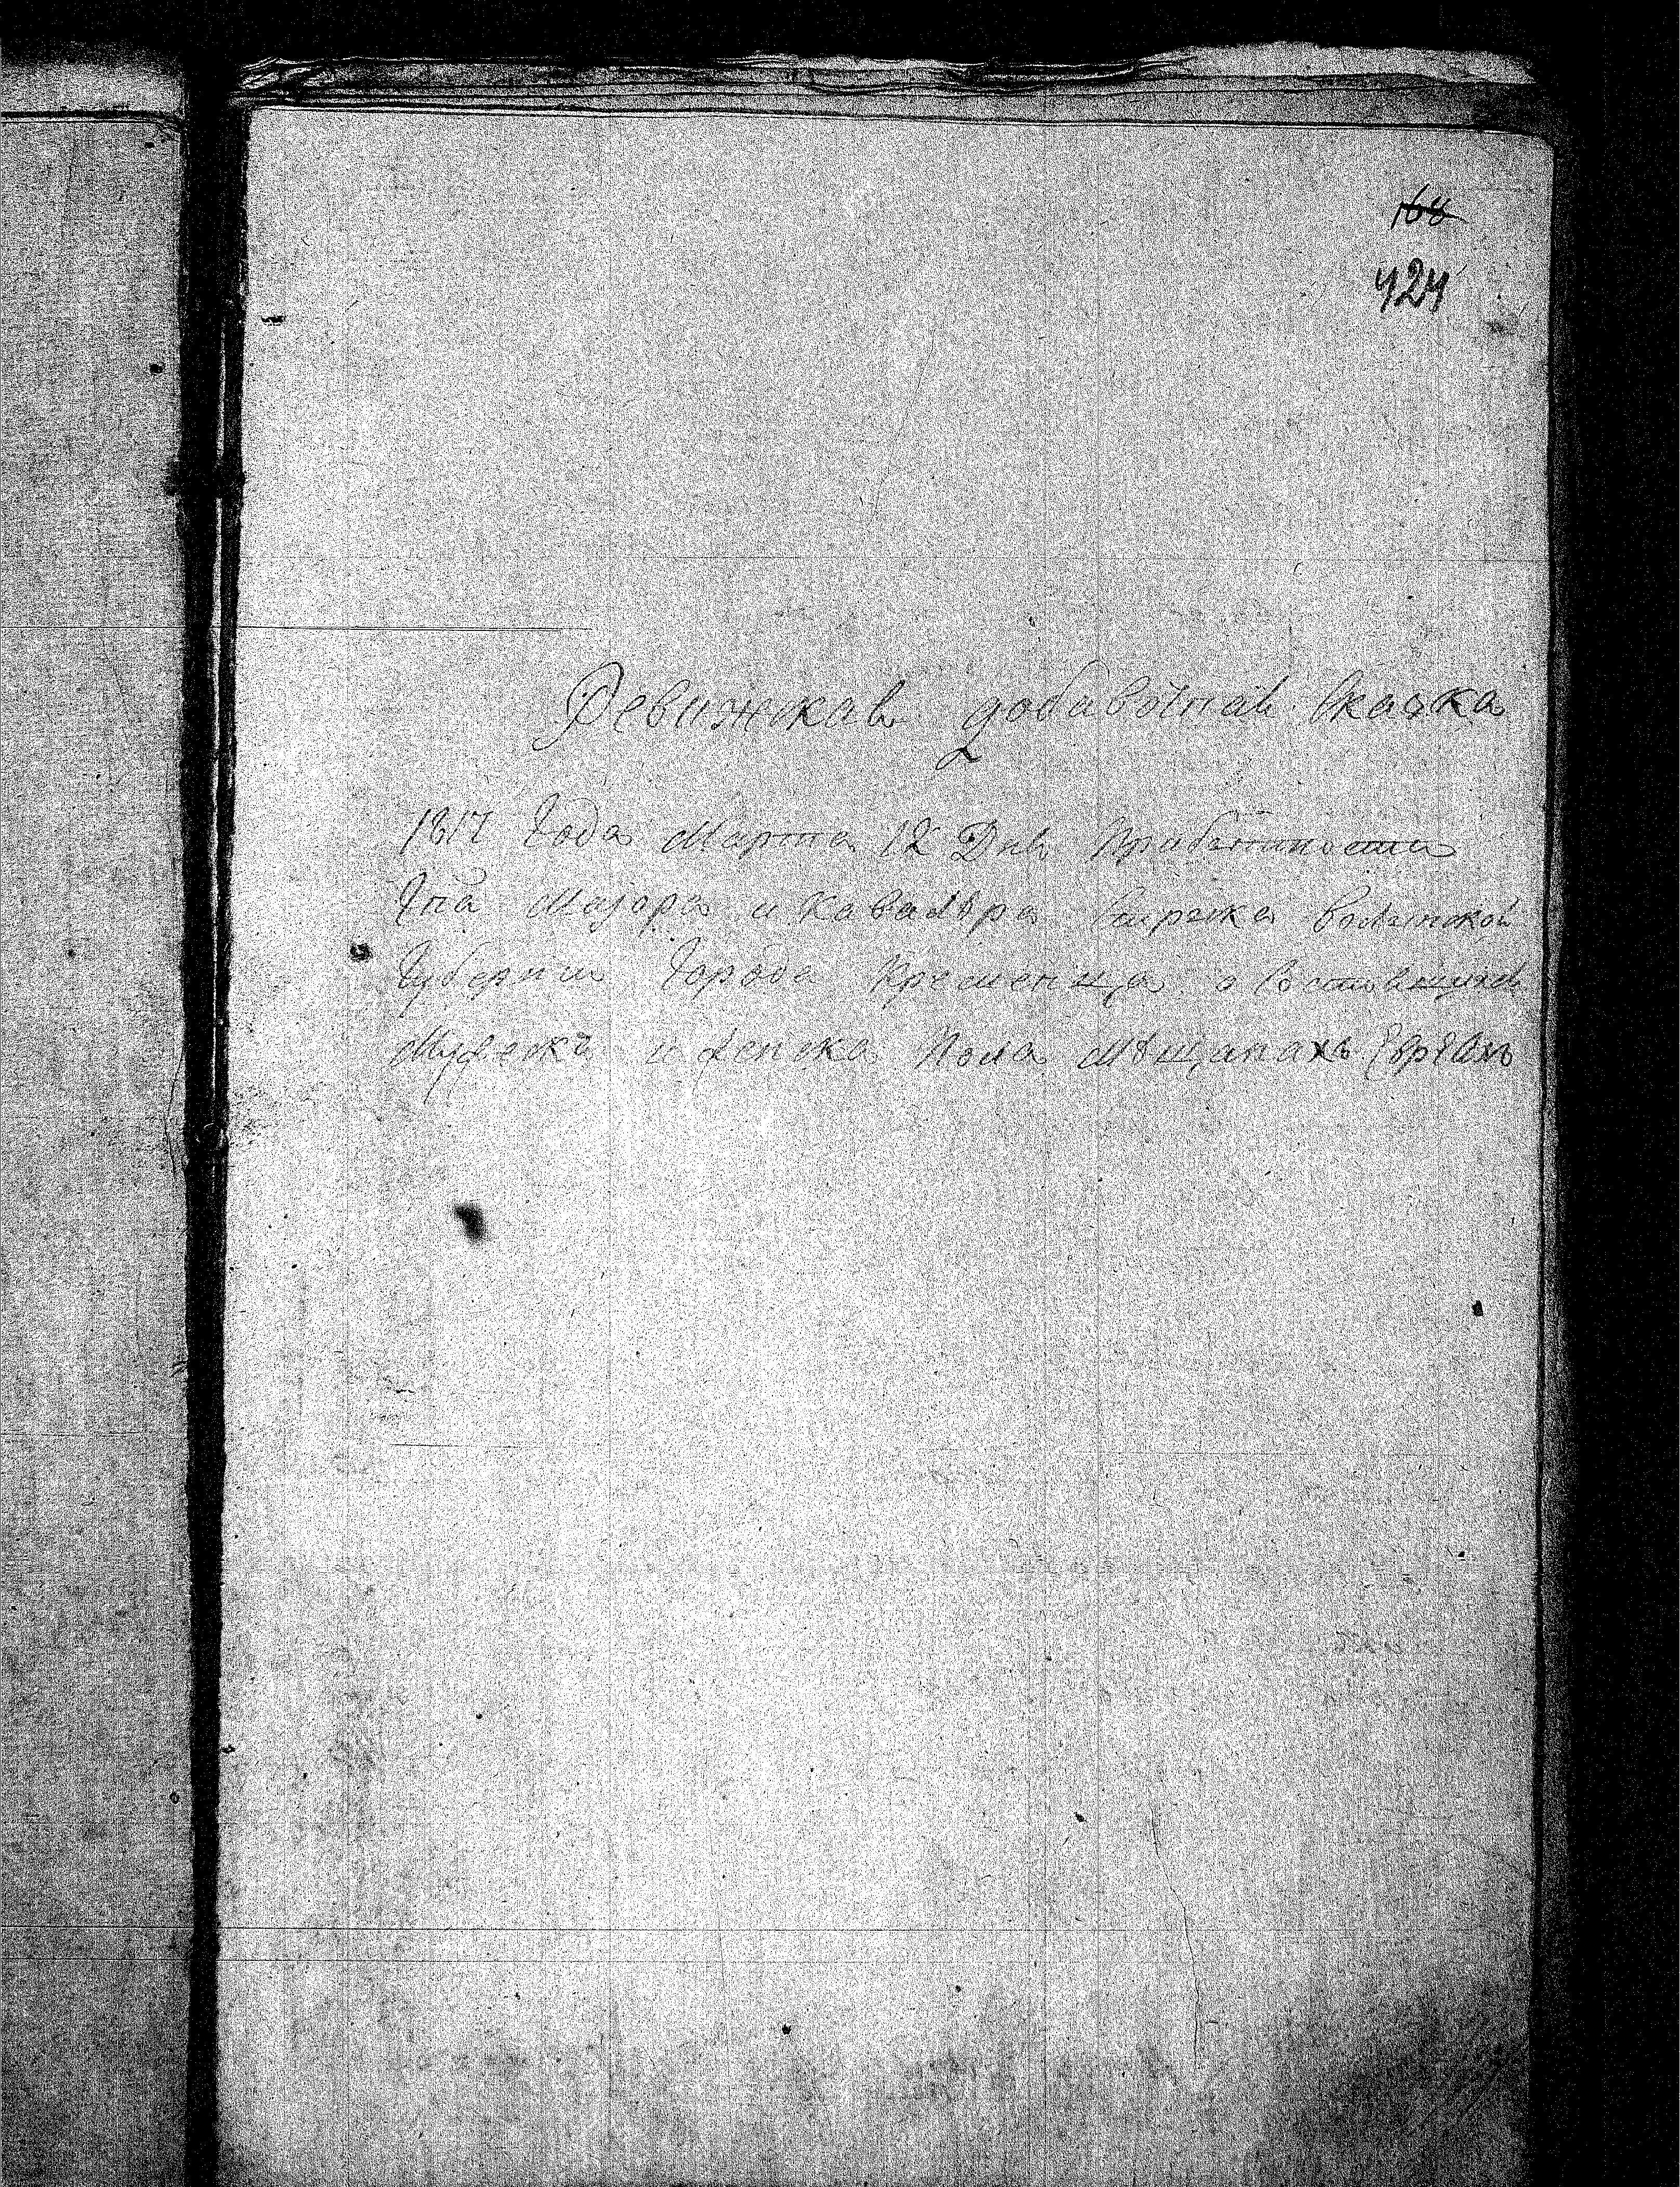 168
424
Ревижская добавочная сказка
1817 Года Марта 12 Дня Прибытности
Гна Маіора и Кавалѣра Волынской
Губернии Города Кременца о
Мужеска и женска Пола Мѣщанахъ Евреяхъ